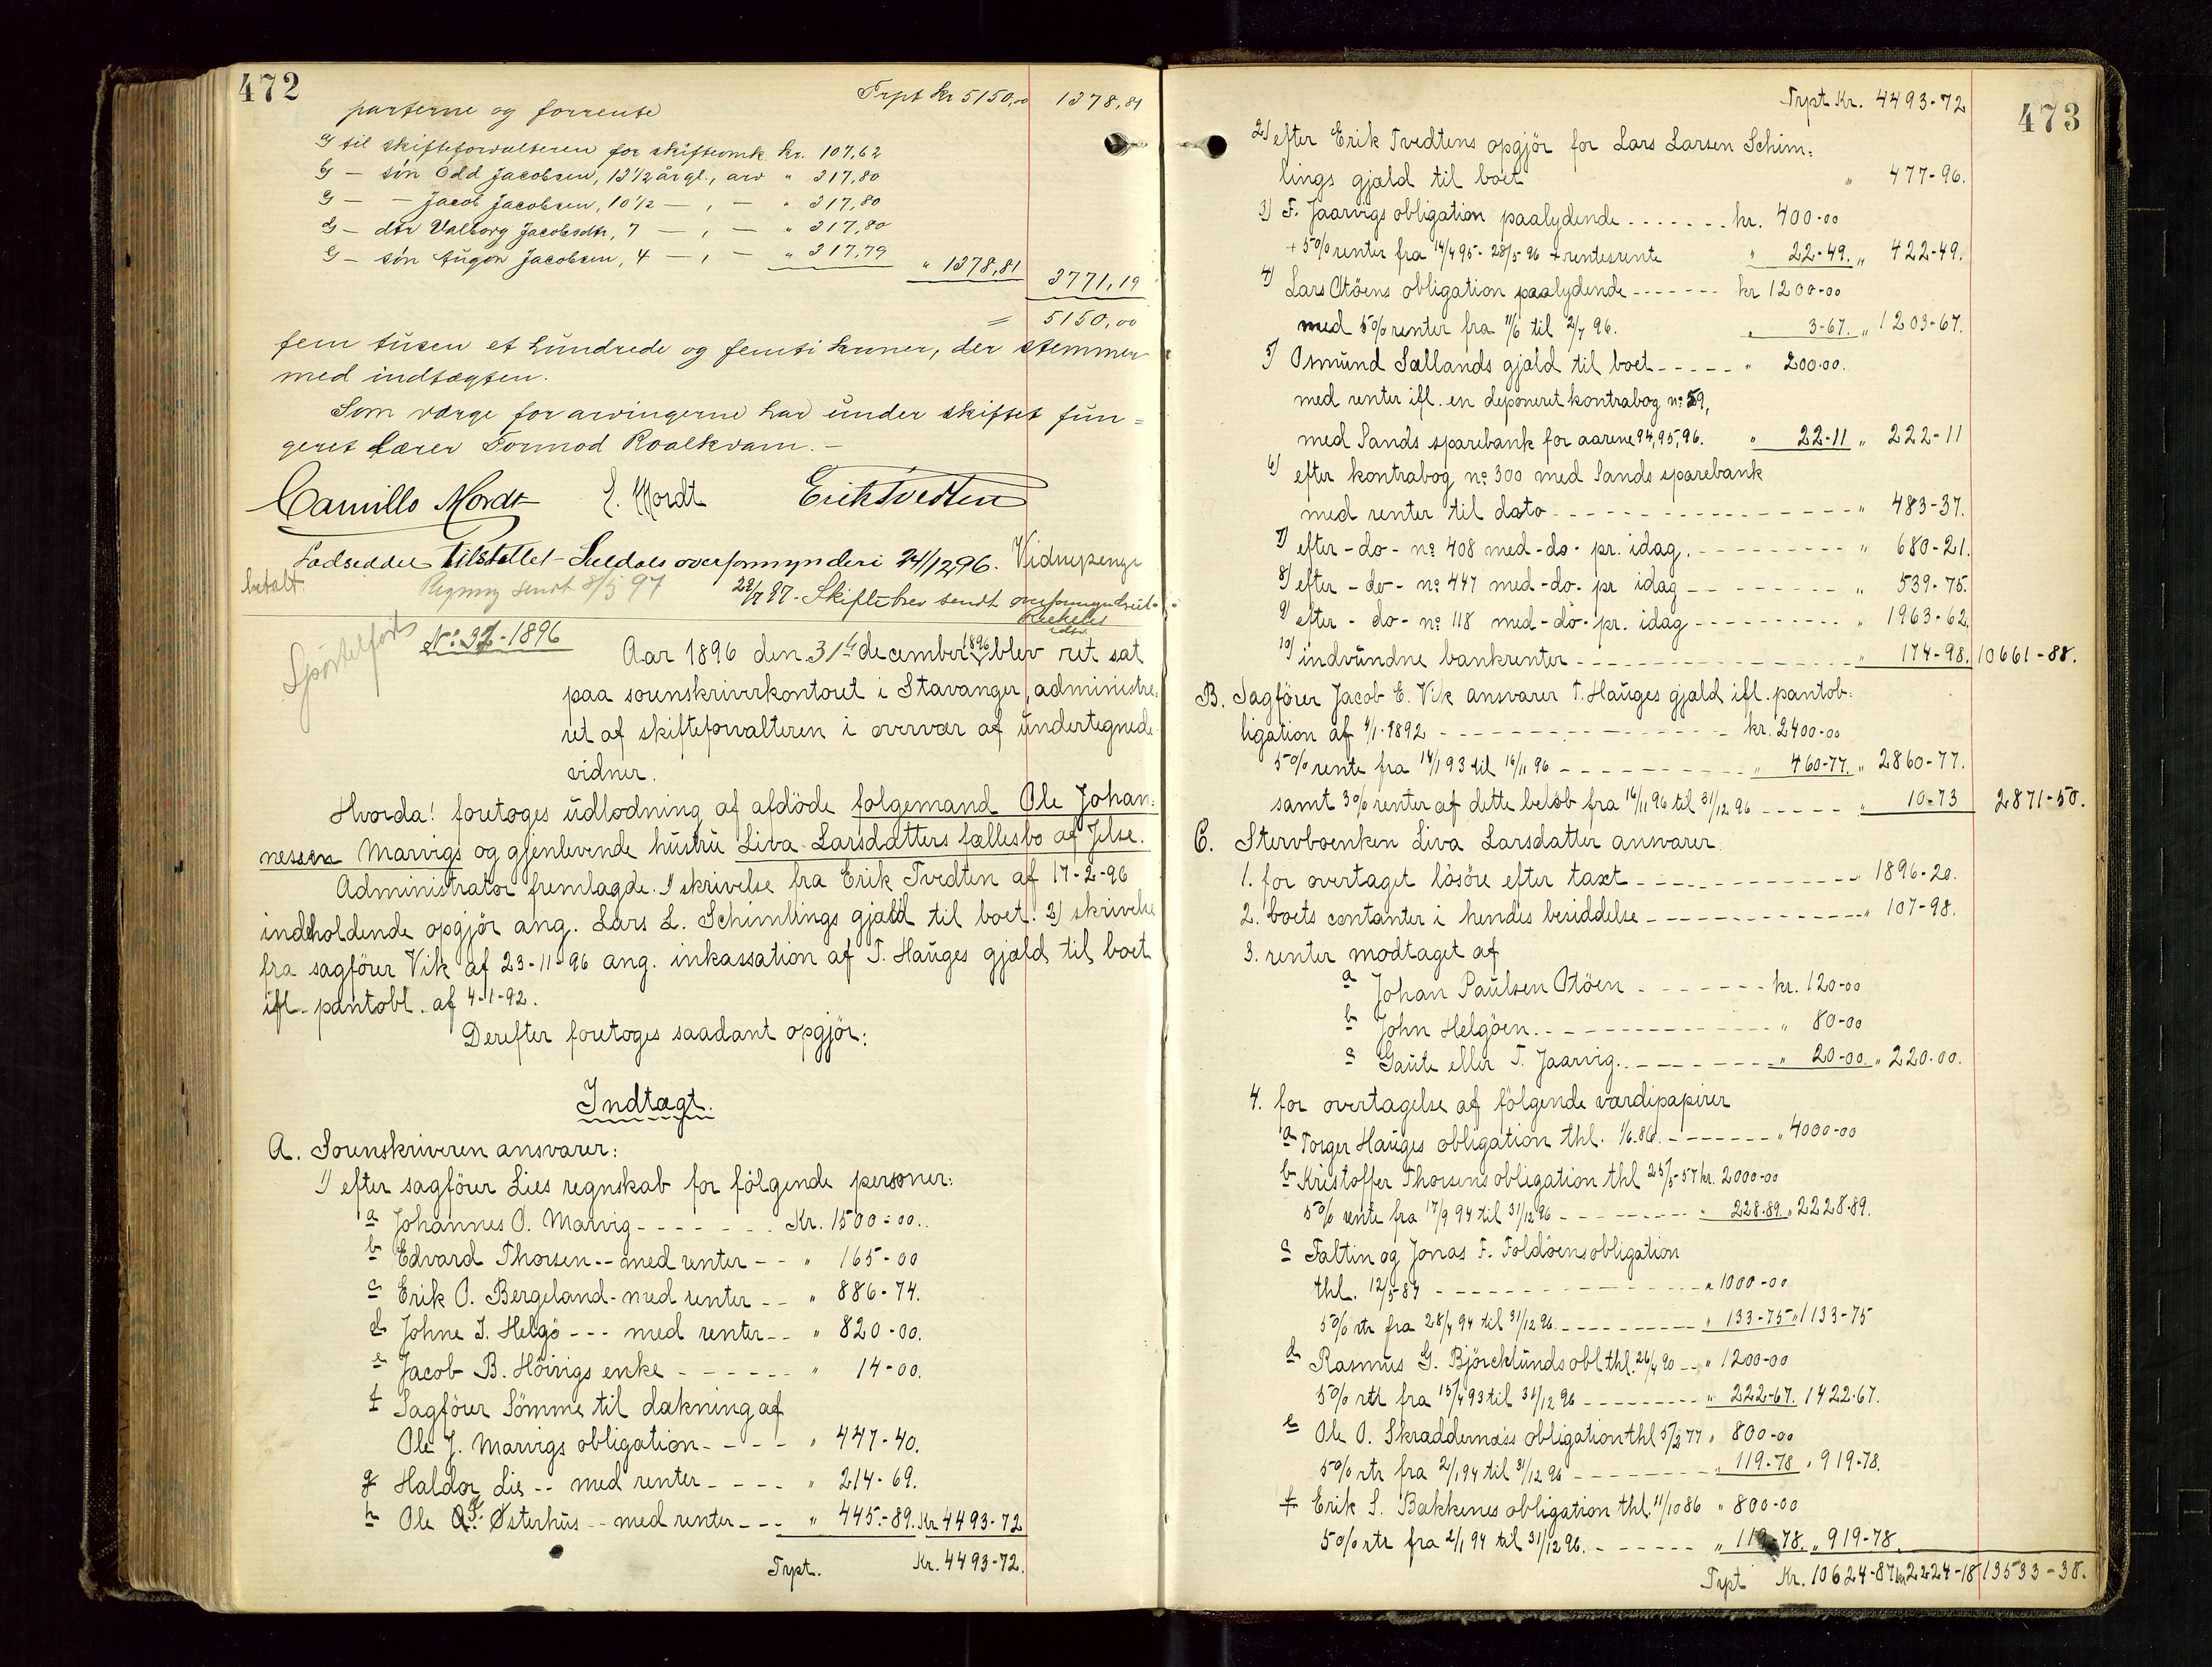 472
Trpt kr 5150,00 1378,81
parterne og forrente
a) til skifteforvalteren for skifteomk. kr. 107,62
b) — søn Odd Jacobsen, 13 1/2 årgl., arv " 317,80
c) — — Jacob Jacobsen, 10 1/2 — , — " 317,80
d) — dtr Valborg Jacobsdtr, 7 — , — " 317,80
e) — søn Augon Jacobsen, 4 — , — " 317,79 " 1378,81 3771,19
= 5150,00
fem tusen et hundrede og femti kroner, der stemmer
med indtægten.
Som værge for arvingerne har under skiftet fun=
geret lærer Tormod Roalkvam. —
Camillo Mordt E. Mordt Erik Tvedten
Lodseddel tilstillet Suldals overformynderi 24/12 96. Vidnepenge
betalt. Regning sendt 8/5 97 22/7 97 - Skiftebrev sendt overformynderiet
Sportelfrit
No. 32 - 1896
Aar 1896 den 31te december 1896 blev ret sat
paa sorenskriverkontoret i Stavanger, administre=
ret af skifteforvalteren i overvær af undertegnede
vidner.
Hvorda! foretoges udlodning af afdöde folgemand Ole Johan=
nessen Marvigs og gjenlevende hustru Liva Larsdatters fællesbo af Jelse.
Administrator fremlagde. 1) skrivelse fra Erik Tvedten af 17-2-96
indeholdende opgjör ang. Lars L. Schimlings gjæld til boet. 2) skrivelse
fra sagförer Vik af 23-11-96 ang. inkassation af T. Hauges gjæld til boet
ifl. pantobl. af 4-1-92.
Derefter foretoges saadant opgjör:
Indtægt.
A. Sorenskriveren ansvarer:
1) efter sagförer Lies regnskab for fölgende personer:
a Johannes O. Marvig - - - - - - Kr. 1500=00.
b Edvard Thorsen - - med renter - - " 165-00
c Erik O. Bergeland - med renter - - " 886-74.
d Johne J. Helgö - - - med renter - - " 820-00.
e Jacob B. Höivigs enke - - - - - - " 14-00.
f Sagförer Sömme til dækning af
Ole J. Marvigs obligation - - - - " 447-40.
g Haldor Lie - - med renter - - - - " 214-69.
h Ole Østerhus - - med renter - - - " 445-89. Kr 4493-72
Trpt. Kr. 4493-72.
473
Trpt Kr. 4493-72
2) efter Erik Tvedtens opgjör for Lars Larsen Schim=
lings gjæld til boet " 477-96.
3) F. Jaarvigs obligation paalydende - - - - - - kr. 400-00
+ 5% renter fra 14/4 95 - 28/5 96 + rentesrente " 22-49. " 422-49.
4) Lars Otöens obligation paalydende - - - - - - kr 1200-00
med 5% renter fra 11/6 til 2/7 96. " 3-67. " 1203-67.
5) Osmund Sællands gjæld til boet - - - - - " 200.00.
med renter ifl. en deponeret kontrabog no. 59,
med Sands sparebank for aarene 94, 95, 96. " 22-11 " 222-11
6) efter kontrabog no. 300 med Sands sparebank
med renter til dato - - - - - - - - - - " 483-37.
7) efter - do - no. 408 med - do - pr. idag. - - - - - - " 680-21.
8) efter - do - no. 447 med - do - pr idag - - - - - - " 539-75.
9) efter - do - no. 118 med - do - pr. idag - - - - - - " 1963-62.
10) indvundne bankrenter - - - - - - - - - - " 174-98. 10661-88.
B. Sagförer Jacob E. Vik ansvarer T. Hauges gjæld ifl. pantob=
ligation af 4/1-1892 - - - - - - - - - - kr. 2400-00
5% rente fra 14/1 93 til 16/11 96 - - - - - - " 460-77. " 2860-77.
samt 3% renter af dette belöb fra 16/11 96 til 31/12 96 - - - - - " 10-73 2871-50.
C. Stervboenken Liva Larsdatter ansvarer
1. for overtaget lösöre efter taxt - - - - - - - - " 1896-20.
2. boets contanter i hendes besiddelse - - - - - - - - " 107-98.
3. renter modtaget af
a Johan Paulsen Otöen - - - - - - - kr. 120-00
b John Helgöen. - - - - - - - - - " 80-00
c Gaute eller T. Jaarvig. - - - - - - " 20-00. " 220.00.
4. for overtagelse af fölgende værdipapirer
a Torger Hauges obligation thl. 1/6.86. - - - - - - " 4000-00
b Kristoffer Thorsens obligation thl 25/5-57 kr. 2000-00
5% rente fra 17/9 94 til 31/12 96 - - - - - - " 228.89. " 2228.89.
c Faltin og Jonas F. Foldöens obligation
thl. 12/5-87 - - - - - - - - - - " 1000-00
5% rtr fra 28/4 94 til 31/12 96. - - - - - - " 133-75 " 1133-75
d Rasmus G. Björcklunds obl thl. 26/4 90 - - " 1200-00
5% rtr fra 15/4 93 til 31/12 96 - - - - - - " 222-67. 1422.67.
e Ole O. Skraddernæss obligation thl 5/2 77 " 800-00
5% rtr fra 2/1 94 til 31/12 96 - - - - - - " 119-78 " 919-78.
f Erik S. Bakkenes obligation thl. 11/10 86 " 800-00
5% rtr fra 2/1 94 til 31/12 96. - - - - - - " 119-78. " 919-78.
Trpt Kr. 10624-87 kr 2224-18 13533-38.